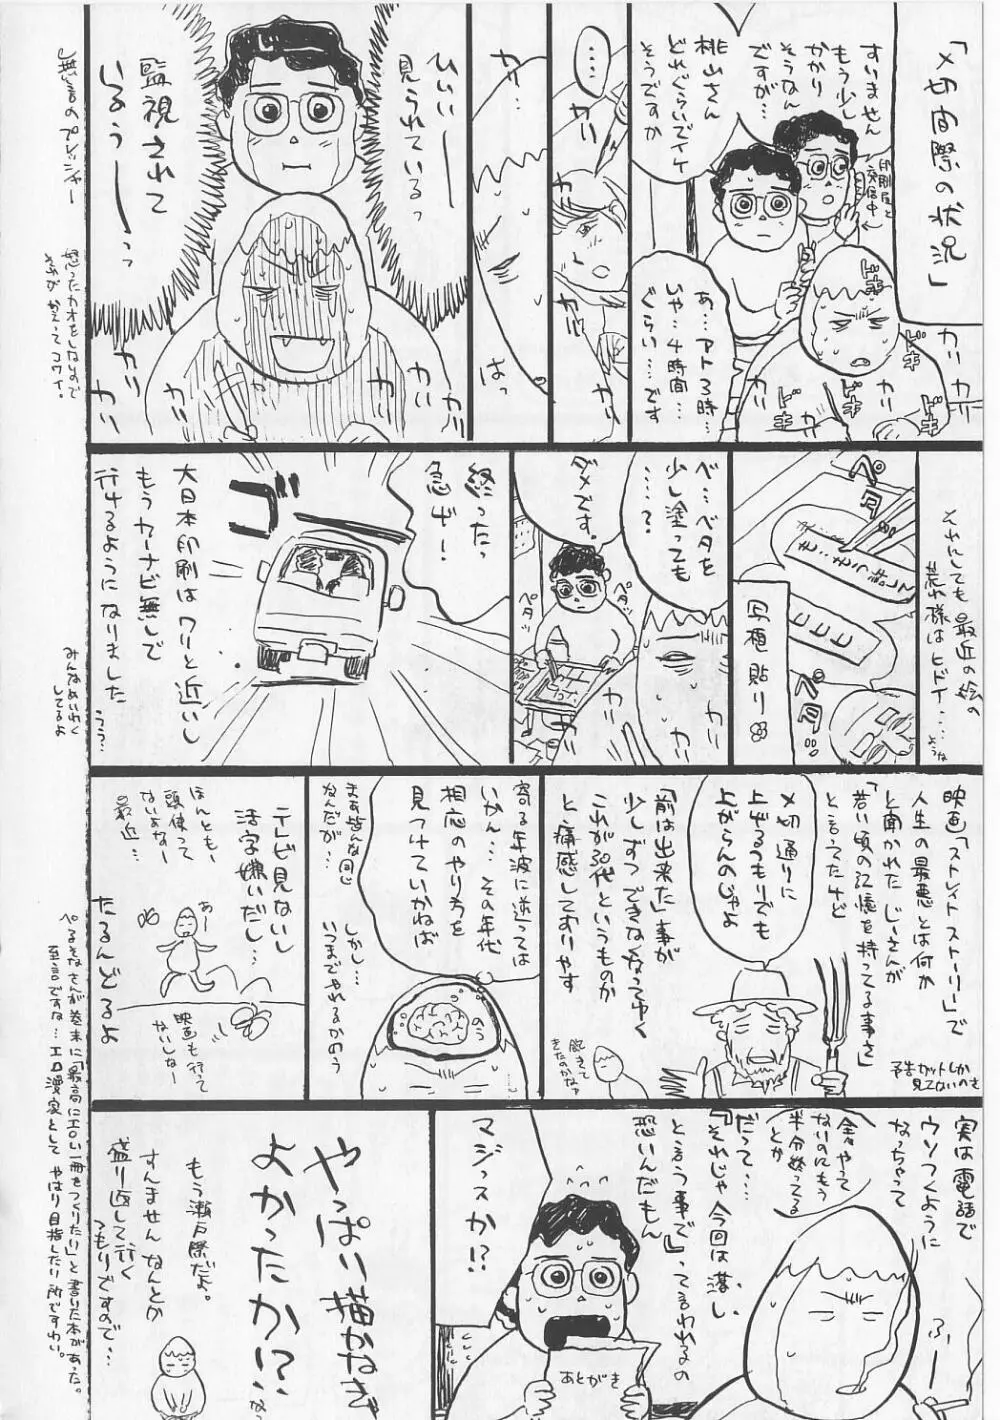 「〆切間際の状況」
すいません
もう少し
かかり
そうなん
ですが…
印刷屋と
交信中
桃山さん
どれぐらいでイケ
そうですか
ドキ
ドキ
ドキ
ドキ
あ…アト3時…
いや…4時間…
ぐらい……です
カリ
カリ
……
カリ
カリ
カリ
カリ
カリ…
はっ
ひいぃー
見られているっ
監視されて
いるうーっ
カリ
カリ
カリ
カリ
無言のプレッシャー
怒ったカオをしないので
それがかえってコワイ。
それにしても最近の絵の
荒れ様はヒドイ…
ペタ
ペタ
写植貼り
ベ…ベタを
少し塗っても
……?
カリ
カリ
ダメです。
ペタッ
ペタッ
終ったっ
急げ!
ゴ
大日本印刷はワリと近いし
もうカーナビ無しで
行けるようになりました
うう…
みんなめいわく
してるよ
映画「ストレイトストーリー」で
人生の最悪とは何か
と聞かれたじーさんが
「若い頃の記憶を持ってる事さ」
と言ってたけど
予告カットしか
見てないのさ
〆切通りに
上げるつもりでも
上がらんのじゃよ
「前は出来た」事が
少しずつできなくなってゆく
これが30代というものか
と、痛感しておりやす
飽きて
きたのかなァ
寄る年波に逆っては
いかん…その年代
相応のやり方を
見つけていかねば
のう
まぁ皆んな同じ
なんだが…
しかし…
いつまでやれるかのう
テレビ見ないし
活字嫌いだし…
ほんともー
頭使って
ないよなー
最近…
あー
映画も行って
ないしなー
たるんどるよ
実は電話で
ウソつくように
なっちゃって
全々やって
ないのにもう
半分終ってる
とか
ふーー
だって…
『それじゃ今回は落し
と言う事で』って言われるの
恐いんだもん
マジっスか!?
あとがき
やっぱい描かなき
よかったかい?
なっ
もう瀬戸際だよ。
すんません なんとか
盛り返して行く
つもりですので…
ぺるそなさんが巻末に「最高にエロい一冊をつくりたい」と書いた本があった。
至言ですね…エロ漫家として やはり目指したい所ですわい。